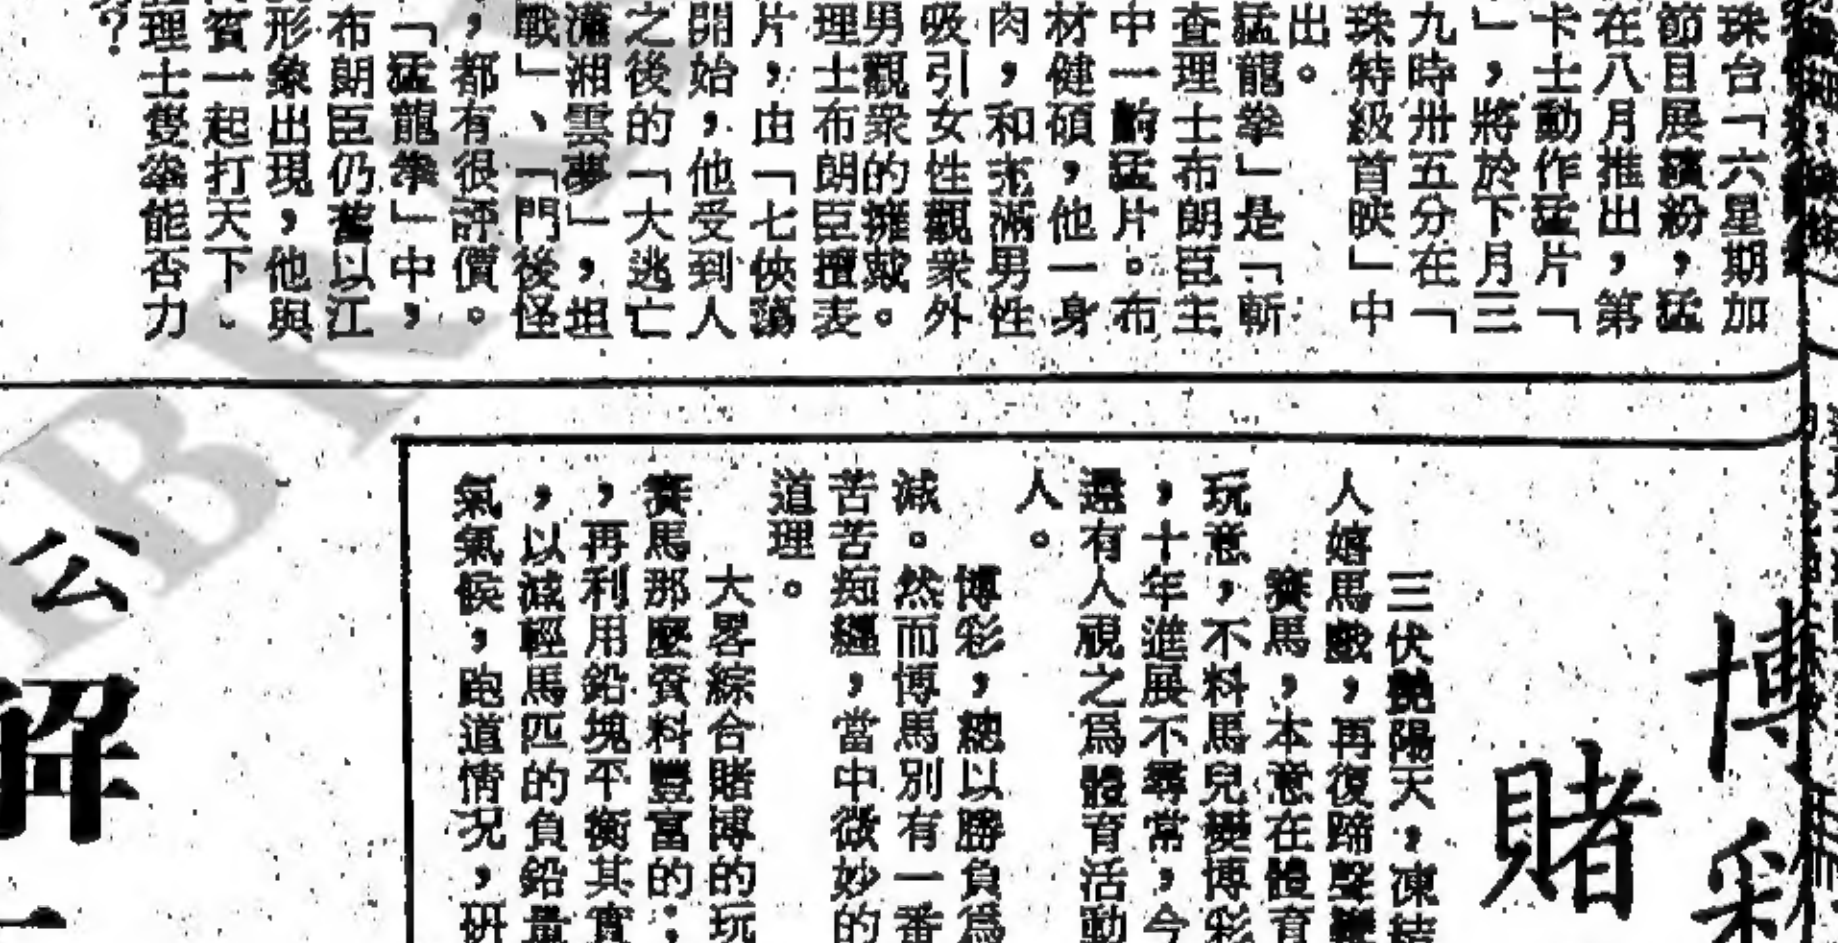 珠台「六星期加
節目展繽紛，猛
在八月推出，第
卡士動作猛片「
」，將於下月三
九時卅五分在「
珠特級首映」中
出。
猛龍拳」是「斬
查理士布朗臣主
中一齣猛片。布
材健碩，他一身
肉，和充滿男性
吸引女性觀衆外
男觀衆的擁戴。
理士布朗臣擅表
片，由「七俠蕩
開始，他受到人
之後的「大逃亡
瀟湘雲夢」，坦
戰」、「門後怪
，都有很評價。
「猛龍拳」中，
布朗臣仍舊以江
形象出現，他與
賓一起打天下。
理士隻拳能否力
？
博彩
賭
三伏艷陽天，凍結
人嬉馬戲，再復蹄聲
賽馬，本意在體育
玩意，不料馬兒變博彩
，十年進展不尋常，今
還有人視之爲體育活動
人。
博彩，總以勝負爲
減。然而博馬別有一番
苦苦痴纏，當中微妙的
道理。
大畧綜合賭博的玩
賽馬那麽資料豐富的；
，再利用鉛塊平衡其實
，以減輕馬匹的負鉛量
氣氣候，跑道情况，研
公解